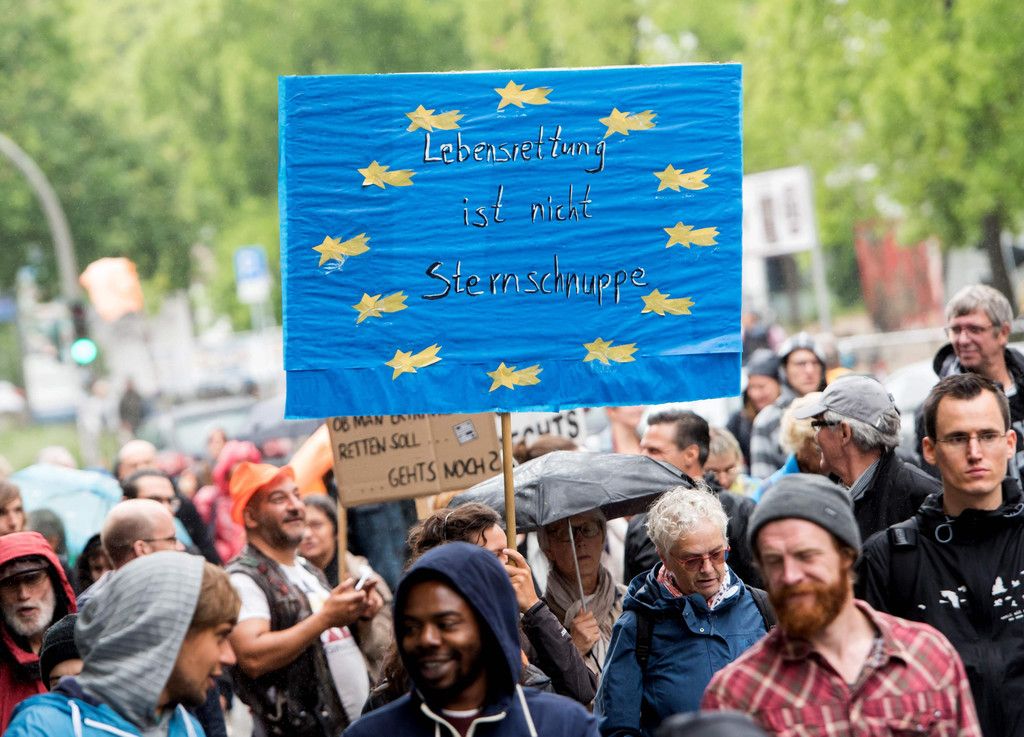 Lebensrettung
ist nicht
Sternschnuppe
OB MAN
RETTEN SOLL...
...GEHTS NOCH?